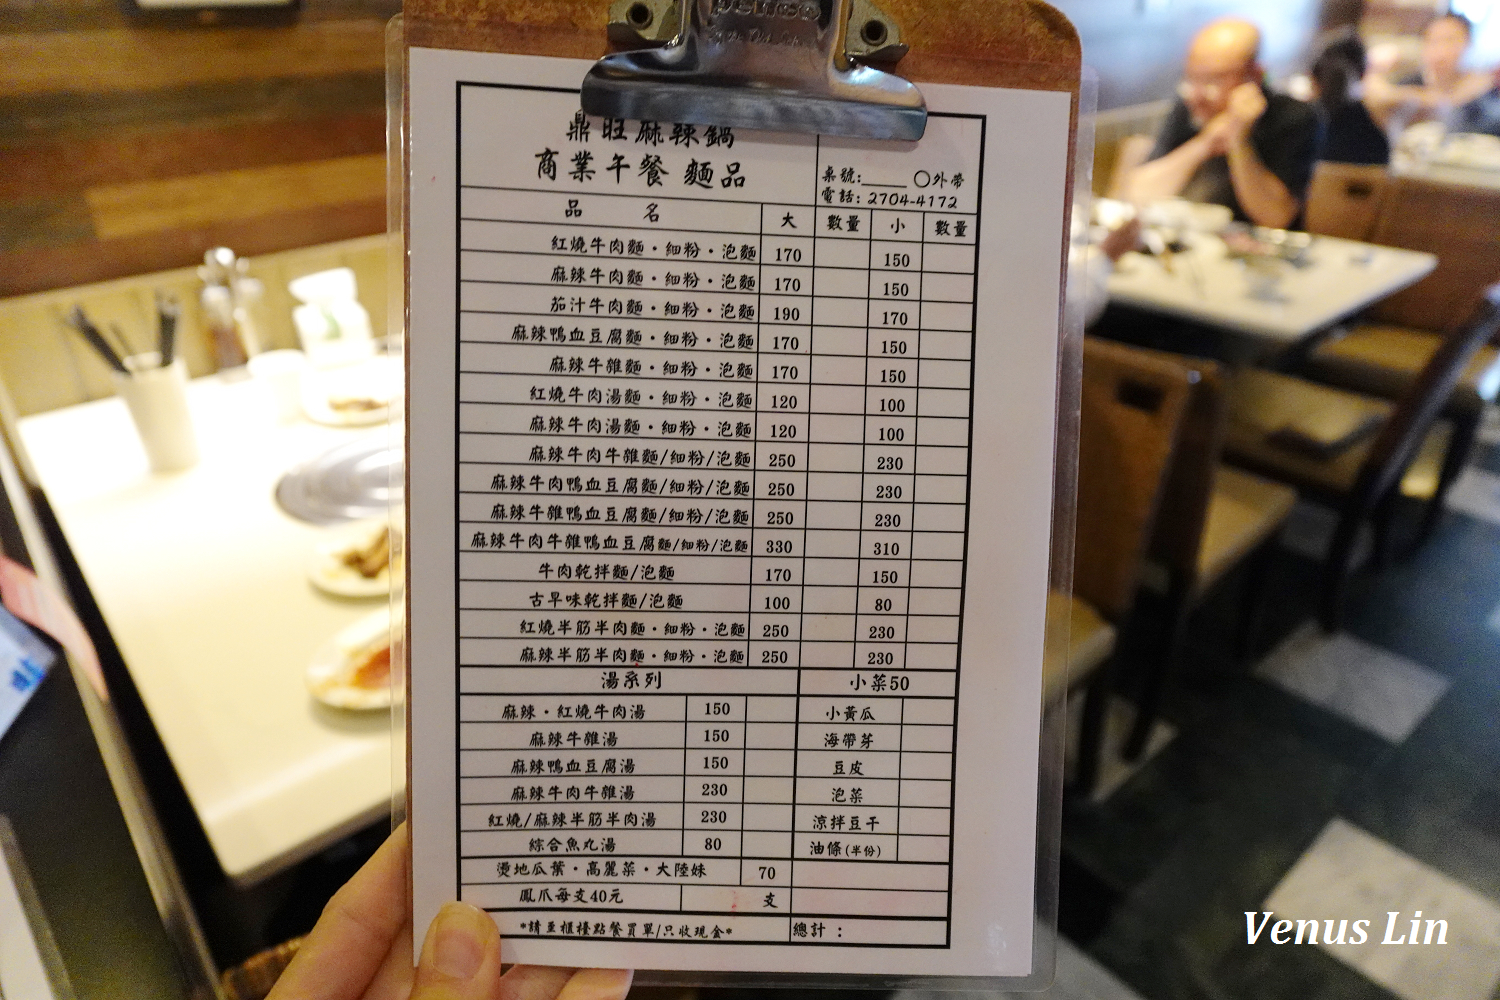 鼎旺麻辣鍋
商業午餐 麵品
桌號:_____ ○外帶
電話: 2704-4172
品 名 大 數量 小 數量
紅燒牛肉麵・細粉・泡麵 170 150
麻辣牛肉麵・細粉・泡麵 170 150
茄汁牛肉麵・細粉・泡麵 190 170
麻辣鴨血豆腐麵・細粉・泡麵 170 150
麻辣牛雜麵・細粉・泡麵 170 150
紅燒牛肉湯麵・細粉・泡麵 120 100
麻辣牛肉湯麵・細粉・泡麵 120 100
麻辣牛肉牛雜麵/細粉/泡麵 250 230
麻辣牛肉鴨血豆腐麵/細粉/泡麵 250 230
麻辣牛雜鴨血豆腐麵/細粉/泡麵 250 230
麻辣牛肉牛雜鴨血豆腐麵/細粉/泡麵 330 310
牛肉乾拌麵/泡麵 170 150
古早味乾拌麵/泡麵 100 80
紅燒半筋半肉麵・細粉・泡麵 250 230
麻辣半筋半肉麵・細粉・泡麵 250 230
湯系列 小菜50
麻辣・紅燒牛肉湯 150 小黃瓜
麻辣牛雜湯 150 海帶芽
麻辣鴨血豆腐湯 150 豆皮
麻辣牛肉牛雜湯 230 泡菜
紅燒/麻辣半筋半肉湯 230 涼拌豆干
綜合魚丸湯 80 油條(半份)
燙地瓜葉・高麗菜・大陸妹 70
鳳爪每支40元 支
*請至櫃檯點餐買單/只收現金* 總計：
Venus Lin